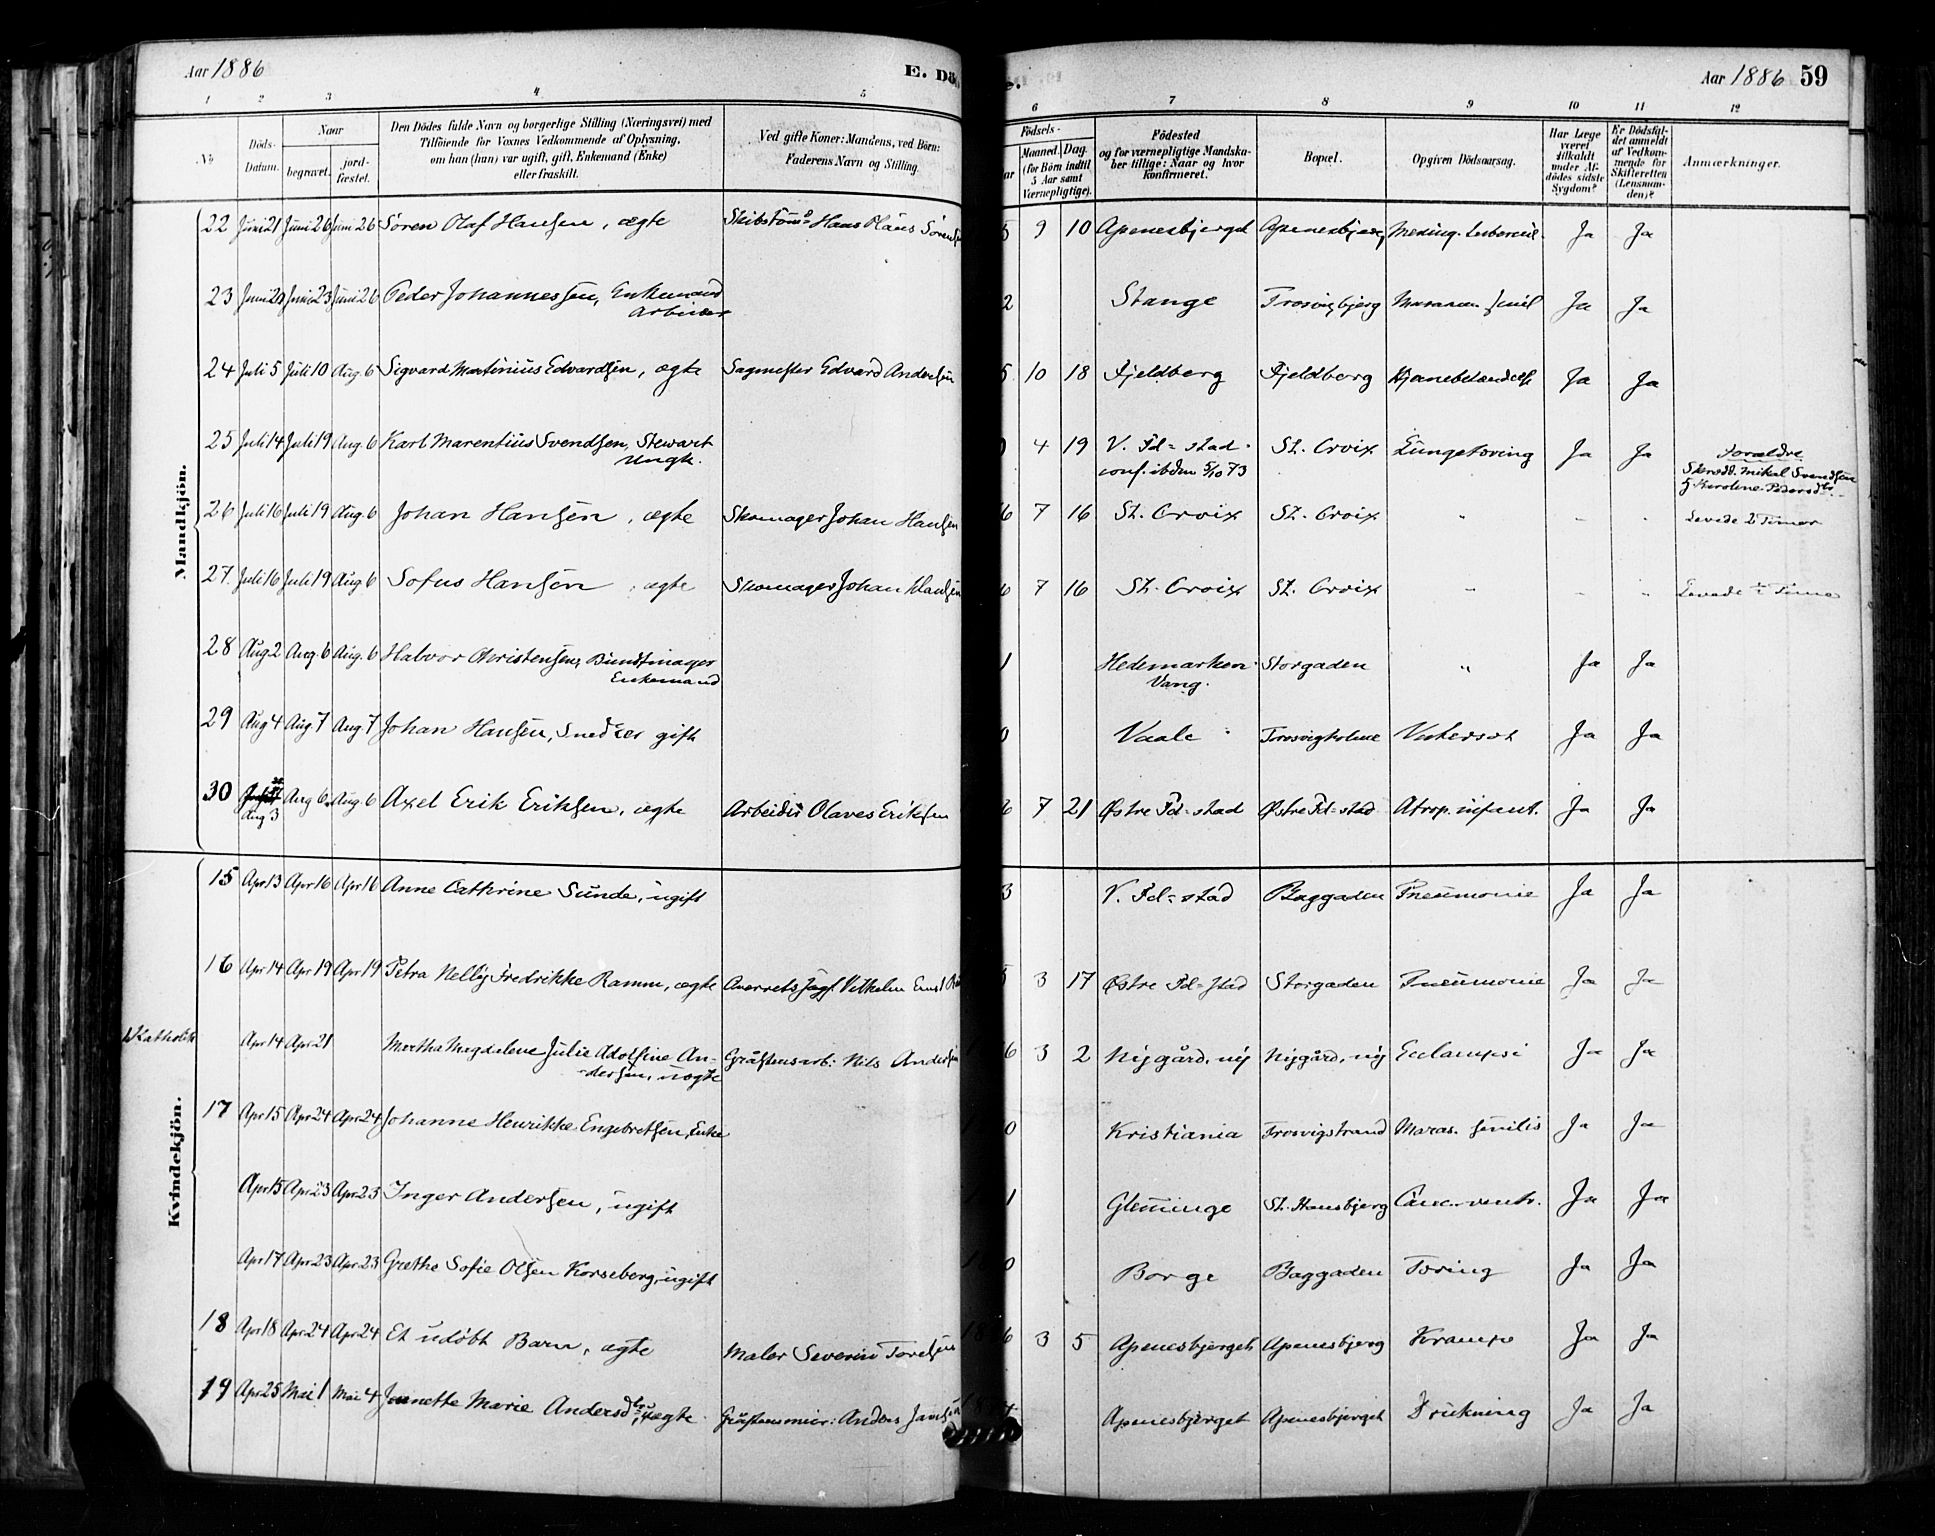 Aar 1886
E. Dö
Aar 1886 59
1 2 3 4 5 6 7 8 9 10 11 12
No
Döds-Datum.
Naar
begravet.
jord-fæstet.
Den Dödes fulde Navn og borgerlige Stilling (Næringsvei) med
Tilföiende for Voxnes Vedkommende af Oplysning,
om han (hun) var ugift, gift, Enkemand (Enke)
eller fraskilt.
Ved gifte Koner: Mandens, ved Börn:
Faderens Navn og Stilling.
Födsels-
Maaned. Dag.
(for Börn indtil
5 Aar samt
Værnepligtige).
Födested
og for værnepligtige Mandska-
ber tillige: Naar og hvor
konfirmeret.
Bopæl.
Opgiven Dödsaarsag.
Har Læge
været
tilkaldt
under Af-
dödes sidste
Sygdom?
Er Dödsfal-
det anmeldt
af Vedkom-
mende for
Skifteretten
(Lensman-
den)?
Anmærkninger.
Mandkjön.
22 Juni 21 Juni 26 Juni 26 Sören Olaf Hansen, ægte Hans Olaus Sörens 5 9 10 Apenesbjerget Apenesbjerg Mening. Ja Ja
23 Juni 20 Juni 23 Juni 26 Peder Johannessen, Enkemand 2 Stange Trosvigbjerg Ja Ja
Arbeider
24 Juli 5 Juli 10 Aug. 6 Sigvard Martinius Edvardsen, ægte Sagmester Edvard Andersen 5 10 18 Fjeldberg Fjeldberg Hjernebetændelse Ja Ja
25 Juli 14 Juli 19 Aug. 6 Karl Marentius Svendsen, Stewart 4 19 V. Fd=stad St. Croix Lungetæring Ja Ja Forældre
Ungk. conf. ibdm 5/10 73 Mikal Svendsen
Karoline Pedersd
26 Juli 16 Juli 19 Aug. 6 Johan Hansen, ægte Skomager Johan Hansen 6 7 16 St. Croix St. Croix " " " Levede 2 Timer
27 Juli 16 Juli 19 Aug. 6 Sofus Hansen, ægte Skomager Johan Hansen 6 7 16 St. Croix St. Croix " " " Levede ½ Time
28 Aug 2 Aug. 6 Aug. 6 Halvor Christensen, Bundtmager 1 Hedemarken Storgaden " Ja Ja
Enkemand Vang.
29 Aug 4 Aug 7 Aug. 7 Johan Hansen, Snedker gift 0 Vaale Trosvigholme Vatersot Ja Ja
30 Aug 3 Aug 6 Aug. 6 Axel Erik Eriksen, ægte Arbeider Olaves Eriksen 6 7 21 Østre Fd=stad Østre Fd=stad Atrop. infant. Ja Ja
Kvindekjön.
15 Apr 13 Apr 16 Apr 16 Anne Cathrine Sunde, ugift 3 V. Fd=stad Baggaden Pneumonie Ja Ja
16 Apr 14 Apr 19 Apr 19 Petra Nelly Fredrikke Ramm, ægte Overretssagf. Vilhelm Ernst 5 3 17 Østre Fd=stad Storgaden Pneumonie Ja Ja
Katholik Apr 14 Apr 21 Martha Magdalene Julie Adolfine An- Nils Andersen 6 3 2 Nygård, ny Nygård, ny Eclampsi Ja Ja
dersen, uægte
17 Apr 15 Apr 24 Apr 24 Johanne Henrikke Engebretsen, Enke 0 Kristiania Trosvigstrand Maras. senilis Ja Ja
Apr 15 Apr 23 Apr 23 Inger Andersen, ugift 1 Glemminge St. Hansbjerg Canc. ventr. Ja Ja
Apr 17 Apr 23 Apr 23 Grethe Sofie Olsen Korseberg, ugift 0 Borge Baggaden Tæring Ja Ja
18 Apr 18 Apr 24 Apr 24 Et udøbt Barn, ægte Maler Severin 6 3 5 Apenesbjerget Apenesbjerg Krampe Ja Ja
19 Apr 25 Mai 1 Mai 4 Jeanette Marie Andersd, uægte Anders Jansen Apenesbjerget Apenesbjerget Drukning Ja Ja